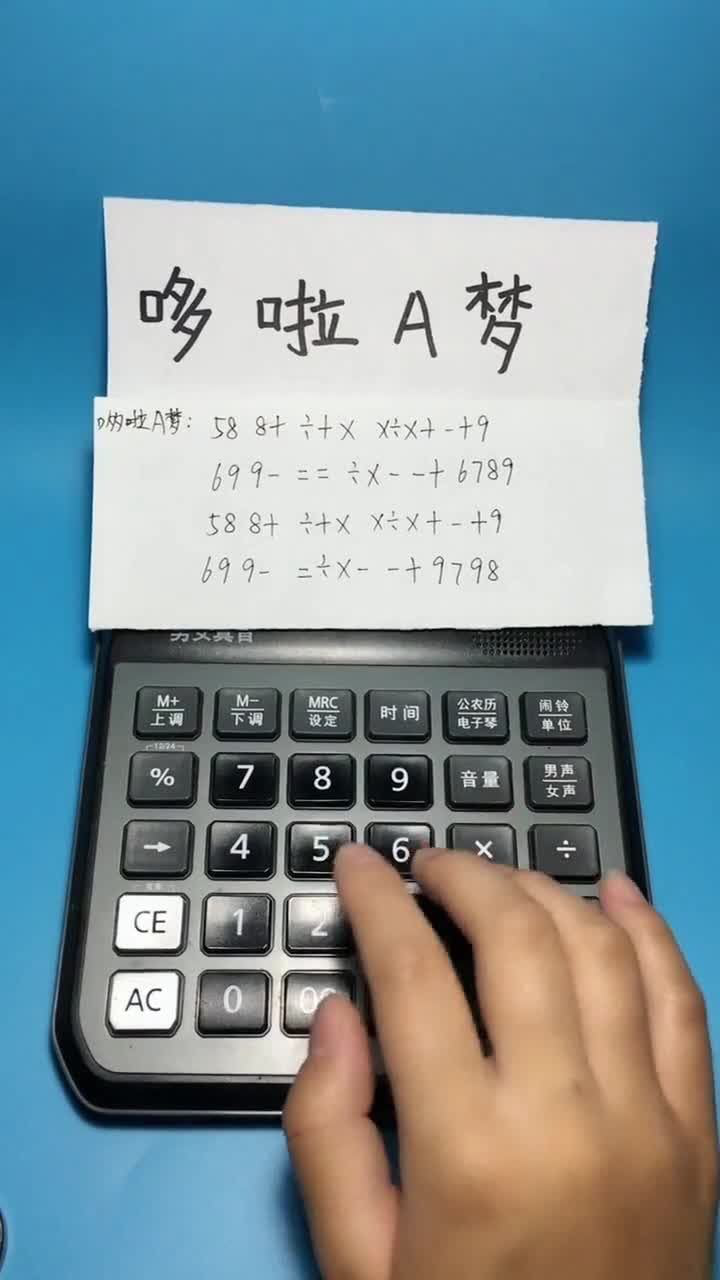 哆啦A梦
哆啦A梦: 58 8+ ÷+× ×÷×+-+9
699- == ÷×- -+ 6789
58 8+ ÷+× ×÷×+-+9
699- =÷×- -+9798
男女真音
M+ 上调 M- 下调 MRC 设定 时间 公农历 电子琴 闹铃 单位
12/24
% 7 8 9 音量 男声 女声
→ 4 5 6 × ÷
CE 1 2
AC 0 00